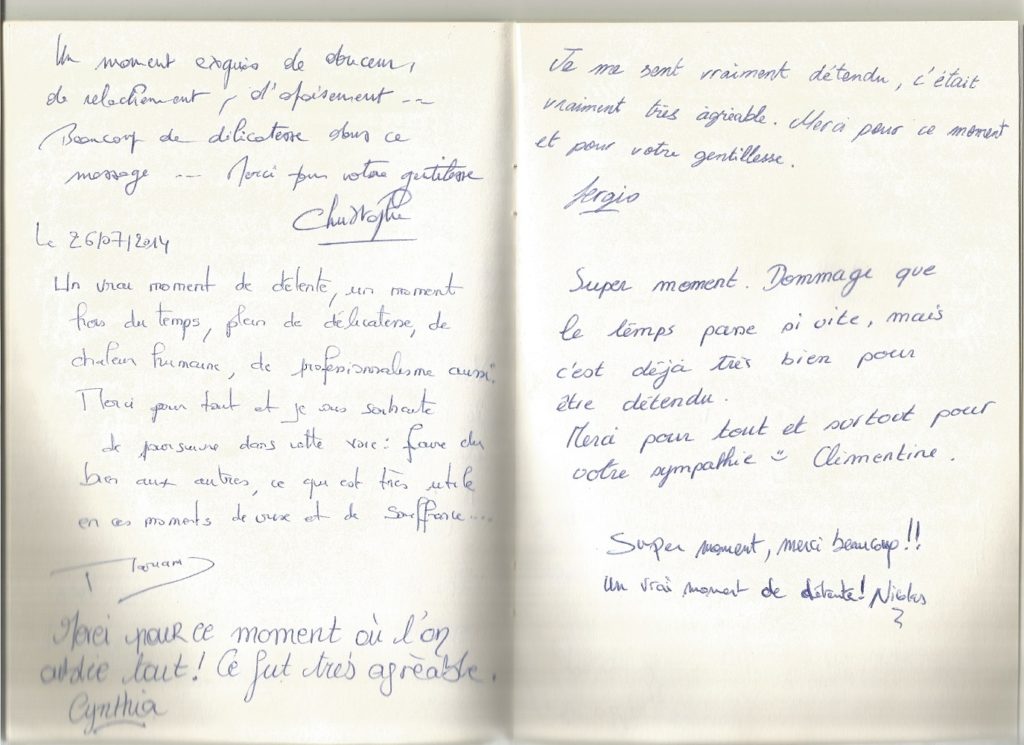 Un moment exquis de douceur,
de relachement, d'apaisement --
Beaucoup de délicatesse dans ce
message --- Merci pour votre gentillesse
Christophe
Le 26/07/2014
Un vrai moment de détente, un moment
hors du temps, plein de délicatesse, de
chaleur humaine, de professionnalisme aussi.
Merci pour tout et je vous souhaite
de poursuivre dans cette voie : faire du
bien aux autres, ce qui est très utile
en ces moments de crise et de souffrance...
Merci pour ce moment où l'on
oublie tout ! Ce fut très agrèable.
Cynthia
Je me sent vraiment détendu, c'était
vraiment très agrèable. Merci pour ce moment
et pour votre gentillesse.
Sergio
Super moment. Dommage que
le temps passe si vite, mais
c'est déjà très bien pour
être détendu.
Merci pour tout et surtout pour
votre sympathie Clémentine.
Super moment, merci beaucoup !!
Un vrai moment de détente ! Nicolas